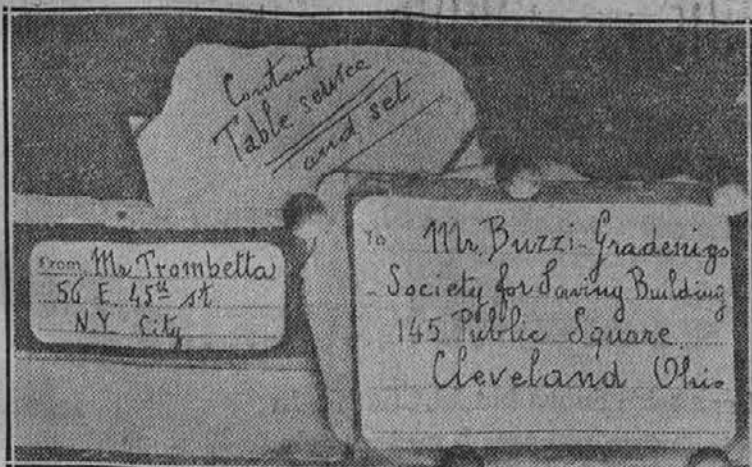 Content
Table service
and set
From Mr Trombetta
56 E. 45th st
N.Y. City
To Mr. Buzzi-Gradenigo
Society for Saving Building
145 Public Square
Cleveland Ohio